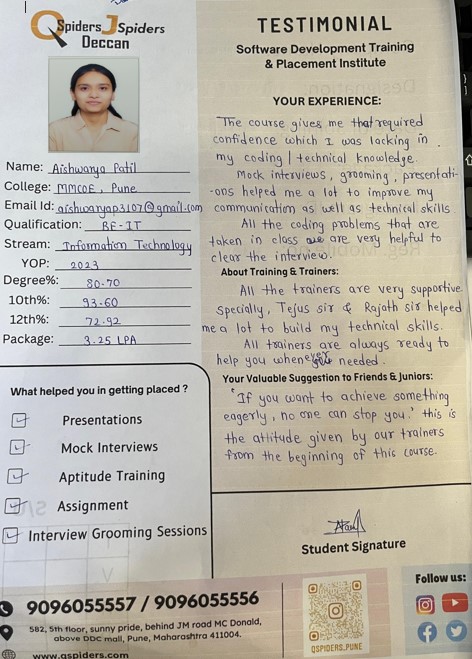 QSpiders JSpiders
Deccan
Name: Aishwarya Patil
College: MMCOE, Pune
Email Id: aishwaryap3107@gmail.com
Qualification: BE-IT
Stream: Information Technology
YOP: 2023
Degree%: 80.70
10th%: 93.60
12th%: 72.92
Package: 3.25 LPA
What helped you in getting placed ?
Presentations
Mock Interviews
Aptitude Training
Assignment
Interview Grooming Sessions
TESTIMONIAL
Software Development Training
& Placement Institute
YOUR EXPERIENCE:
The course gives me that required
confidence which I was lacking in
my coding / technical knowledge.
Mock interviews, grooming, presentati-
-ons helped me a lot to improve my
communication as well as technical skills.
All the coding problems that are
taken in class are very helpful to
clear the interview.
About Training & Trainers:
All the trainers are very supportive
specially, Tejus sir & Rajath sir helped
me a lot to build my technical skills.
All trainers are always ready to
help you whenever you needed.
Your Valuable Suggestion to Friends & Juniors:
'If you want to achieve something
eagerly, no one can stop you.' this is
the attitude given by our trainers
from the beginning of this course.
Student Signature
9096055557 / 9096055556
582, 5th floor, sunny pride, behind JM road MC Donald,
above DDC mall, Pune, Maharashtra 411004.
www.qspiders.com
QSPIDERS.PUNE
Follow us: